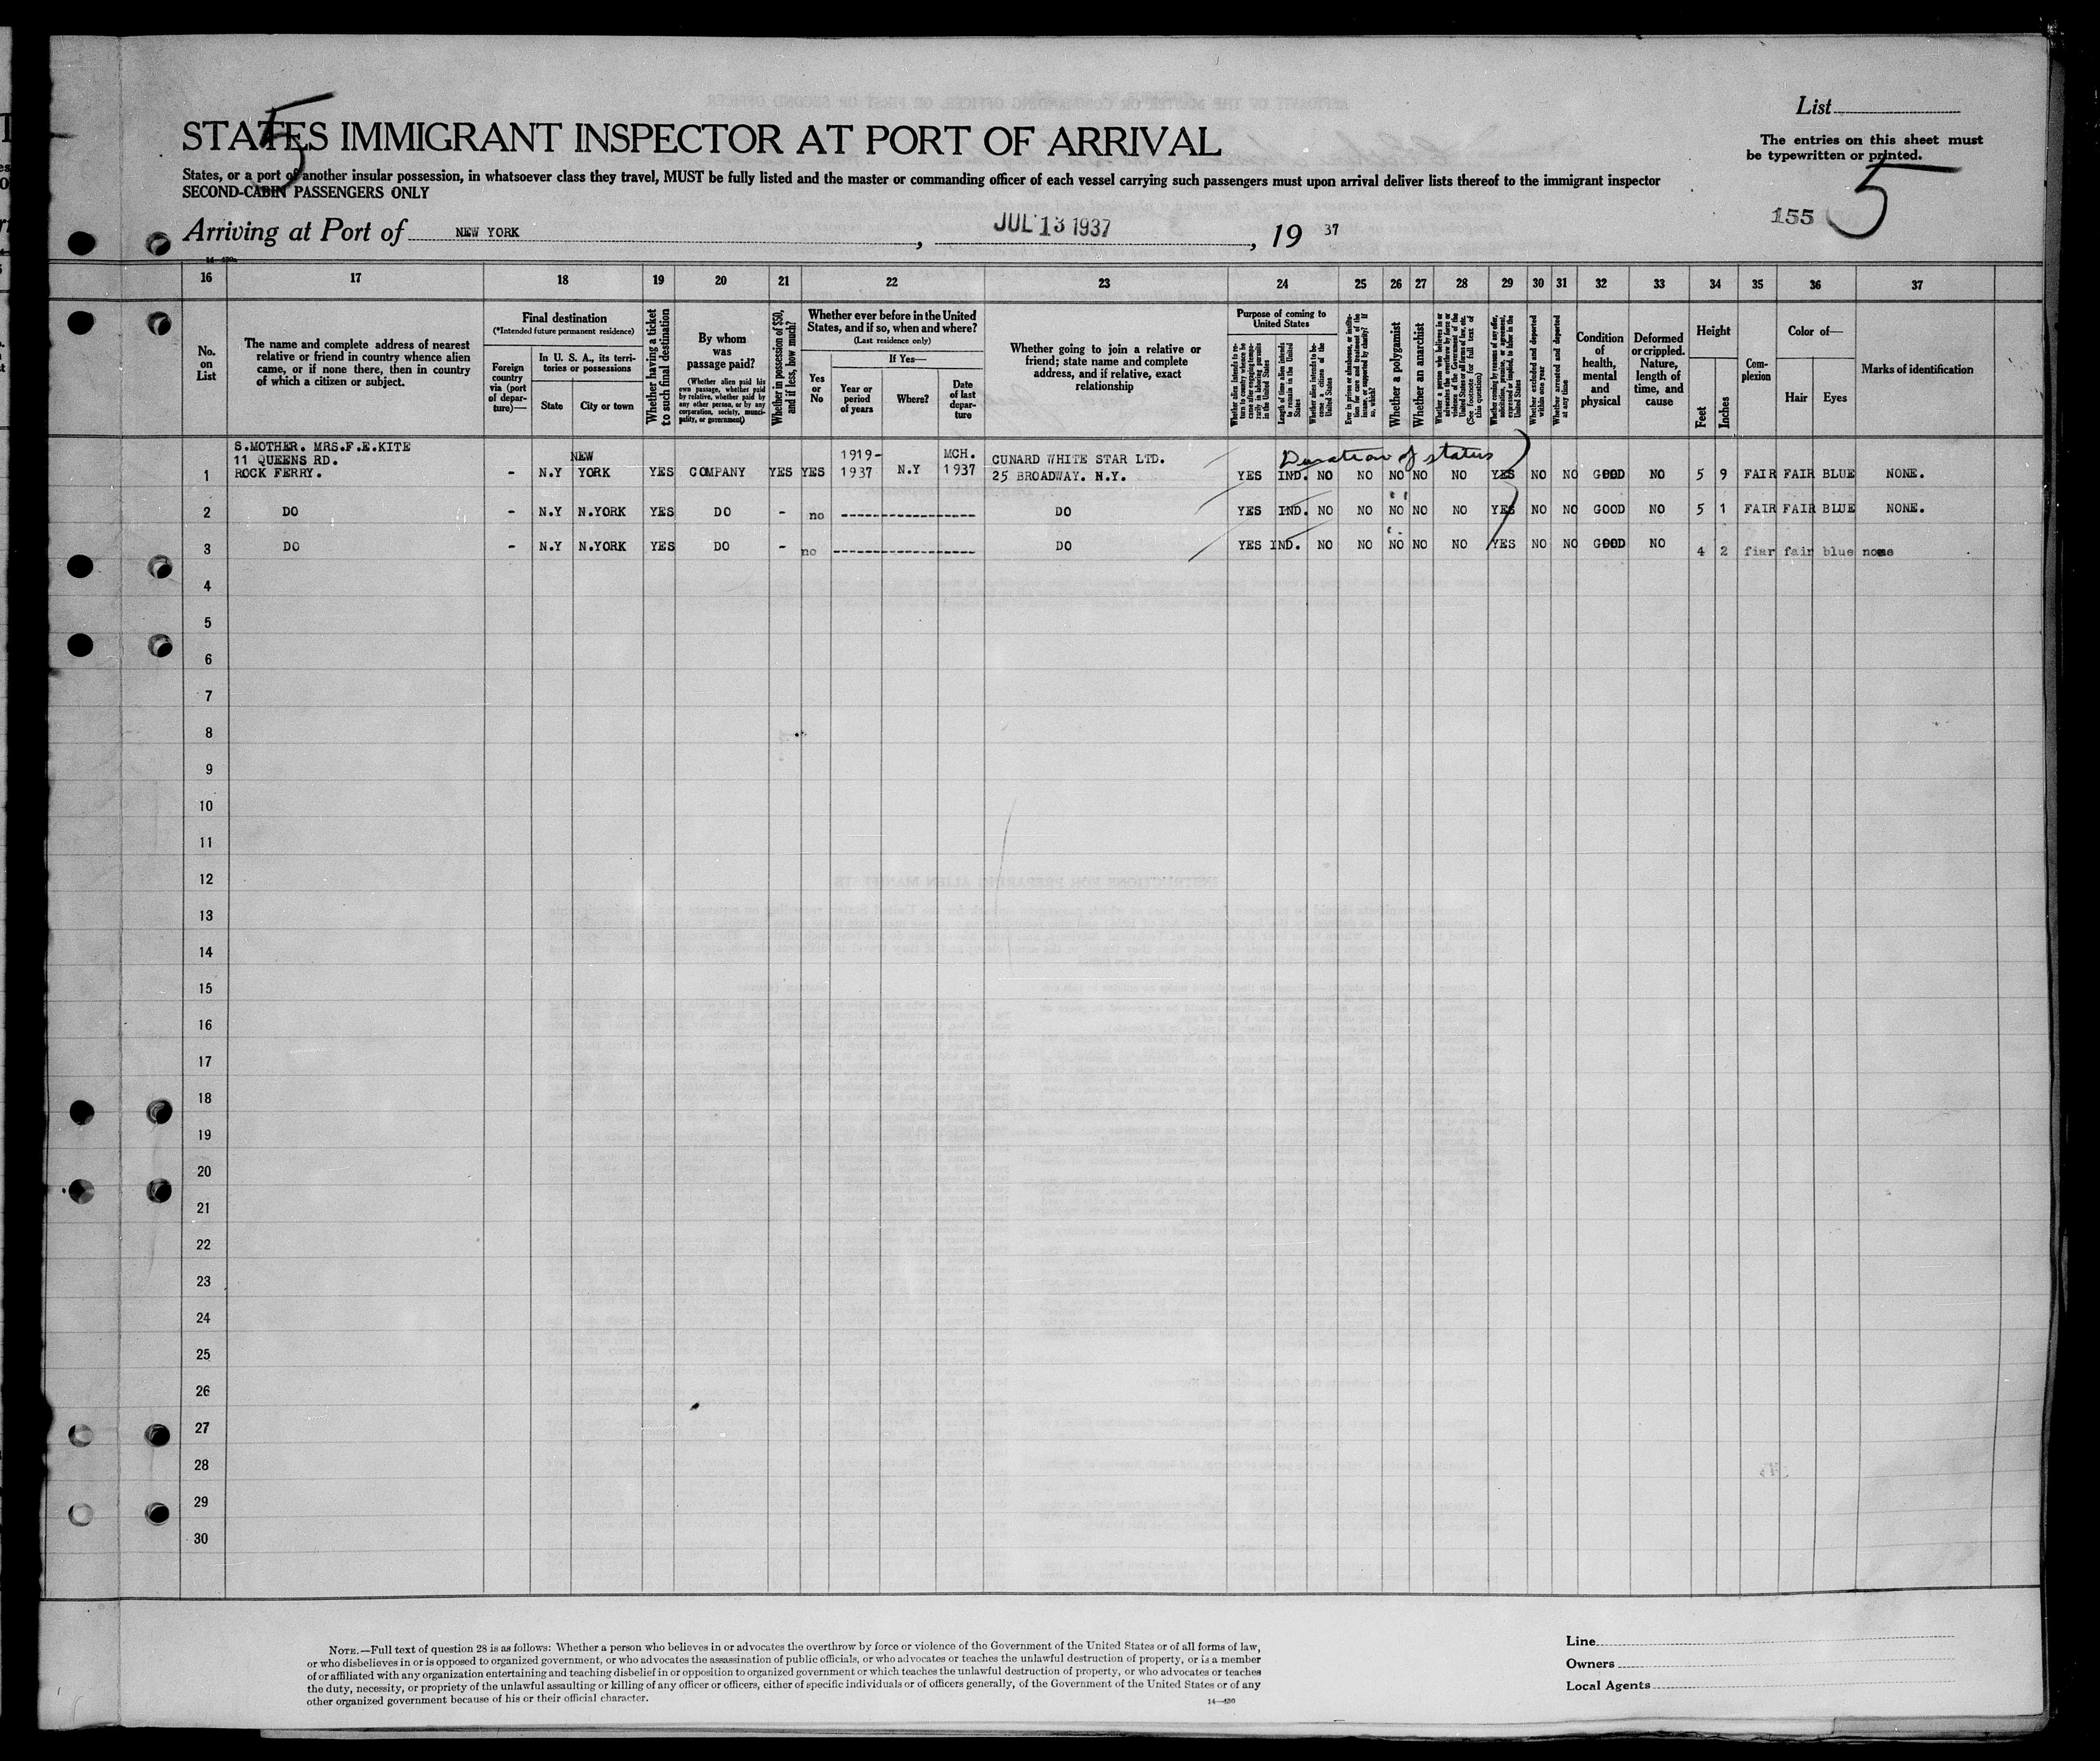 List
5
STATES IMMIGRANT INSPECTOR AT PORT OF ARRIVAL
The entries on this sheet must
be typewritten or printed.
States, or a port of another insular possession, in whatsoever class they travel, MUST be fully listed and the master or commanding officer of each vessel carrying such passengers must upon arrival deliver lists thereof to the immigrant inspector
SECOND-CABIN PASSENGERS ONLY
155 5
Arriving at Port of NEW YORK, JUL 13 1937, 19 37
16 17 18 19 20 21 22 23 24 25 26 27 28 29 30 31 32 33 34 35 36 37
No.
on
List
The name and complete address of nearest
relative or friend in country whence alien
came, or if none there, then in country
of which a citizen or subject.
Final destination
(*Intended future permanent residence)
Foreign
country
via (port
of depar-
ture)—
In U. S. A., its terri-
tories or possessions
State
City or town
Whether having a ticket
to such final destination
By whom
was
passage paid?
(Whether alien paid his
own passage, whether paid
by relative, whether paid by
any other person, or by any
corporation, society, munici-
pality, or government)
Whether in possession of $50,
and if less, how much?
Whether ever before in the United
States, and if so, when and where?
(Last residence only)
Yes
or
No
If Yes—
Year or
period
of years
Where?
Date
of last
depar-
ture
Whether going to join a relative or
friend; state name and complete
address, and if relative, exact
relationship
Purpose of coming to
United States
Whether alien intends to re-
turn to country whence he
came after engaging tempo-
rarily in laboring pursuits
in the United States
Length of time alien intends
to remain in the United
States
Whether alien intends to be-
come a citizen of the
United States
Ever in prison or almshouse, or institu-
tion for care and treatment of the
insane, or supported by charity? If
so, which?
Whether a polygamist
Whether an anarchist
Whether a person who believes in or
advocates the overthrow by force or
violence of the Government of the
United States or all forms of law, etc.
(See footnote for full text of
this question)
Whether coming by reason of any offer,
solicitation, promise, or agreement,
expressed or implied, to labor in the
United States
Whether excluded and deported
within one year
Whether arrested and deported
at any time
Condition
of
health,
mental
and
physical
Deformed
or crippled.
Nature,
length of
time, and
cause
Height
Feet
Inches
Com-
plexion
Color of—
Hair
Eyes
Marks of identification
Duration of status
S.MOTHER. MRS.F.E.KITE NEW 1919- MCH. CUNARD WHITE STAR LTD.
11 QUEENS RD.
1 ROCK FERRY. - N.Y YORK YES COMPANY YES YES 1937 N.Y 1937 25 BROADWAY. N.Y. YES IND. NO NO NO NO NO YES NO NO GOOD NO 5 9 FAIR FAIR BLUE NONE.
2 DO - N.Y N.YORK YES DO - no ---------------- DO YES IND. NO NO NO NO NO YES NO NO GOOD NO 5 1 FAIR FAIR BLUE NONE.
3 DO - N.Y N.YORK YES DO - no ---------------- DO YES IND. NO NO NO NO NO YES NO NO GOOD NO 4 2 fiar fair blue none
4
5
6
7
8
9
10
11
12
13
14
15
16
17
18
19
20
21
22
23
24
25
26
27
28
29
30
NOTE.—Full text of question 28 is as follows: Whether a person who believes in or advocates the overthrow by force or violence of the Government of the United States or of all forms of law,
or who disbelieves in or is opposed to organized government, or who advocates the assassination of public officials, or who advocates or teaches the unlawful destruction of property, or is a member
of or affiliated with any organization entertaining and teaching disbelief in or opposition to organized government or which teaches the unlawful destruction of property, or who advocates or teaches
the duty, necessity, or propriety of the unlawful assaulting or killing of any officer or officers, either of specific individuals or of officers generally, of the Government of the United States or of any
other organized government because of his or their official character.
14—430
Line
Owners
Local Agents